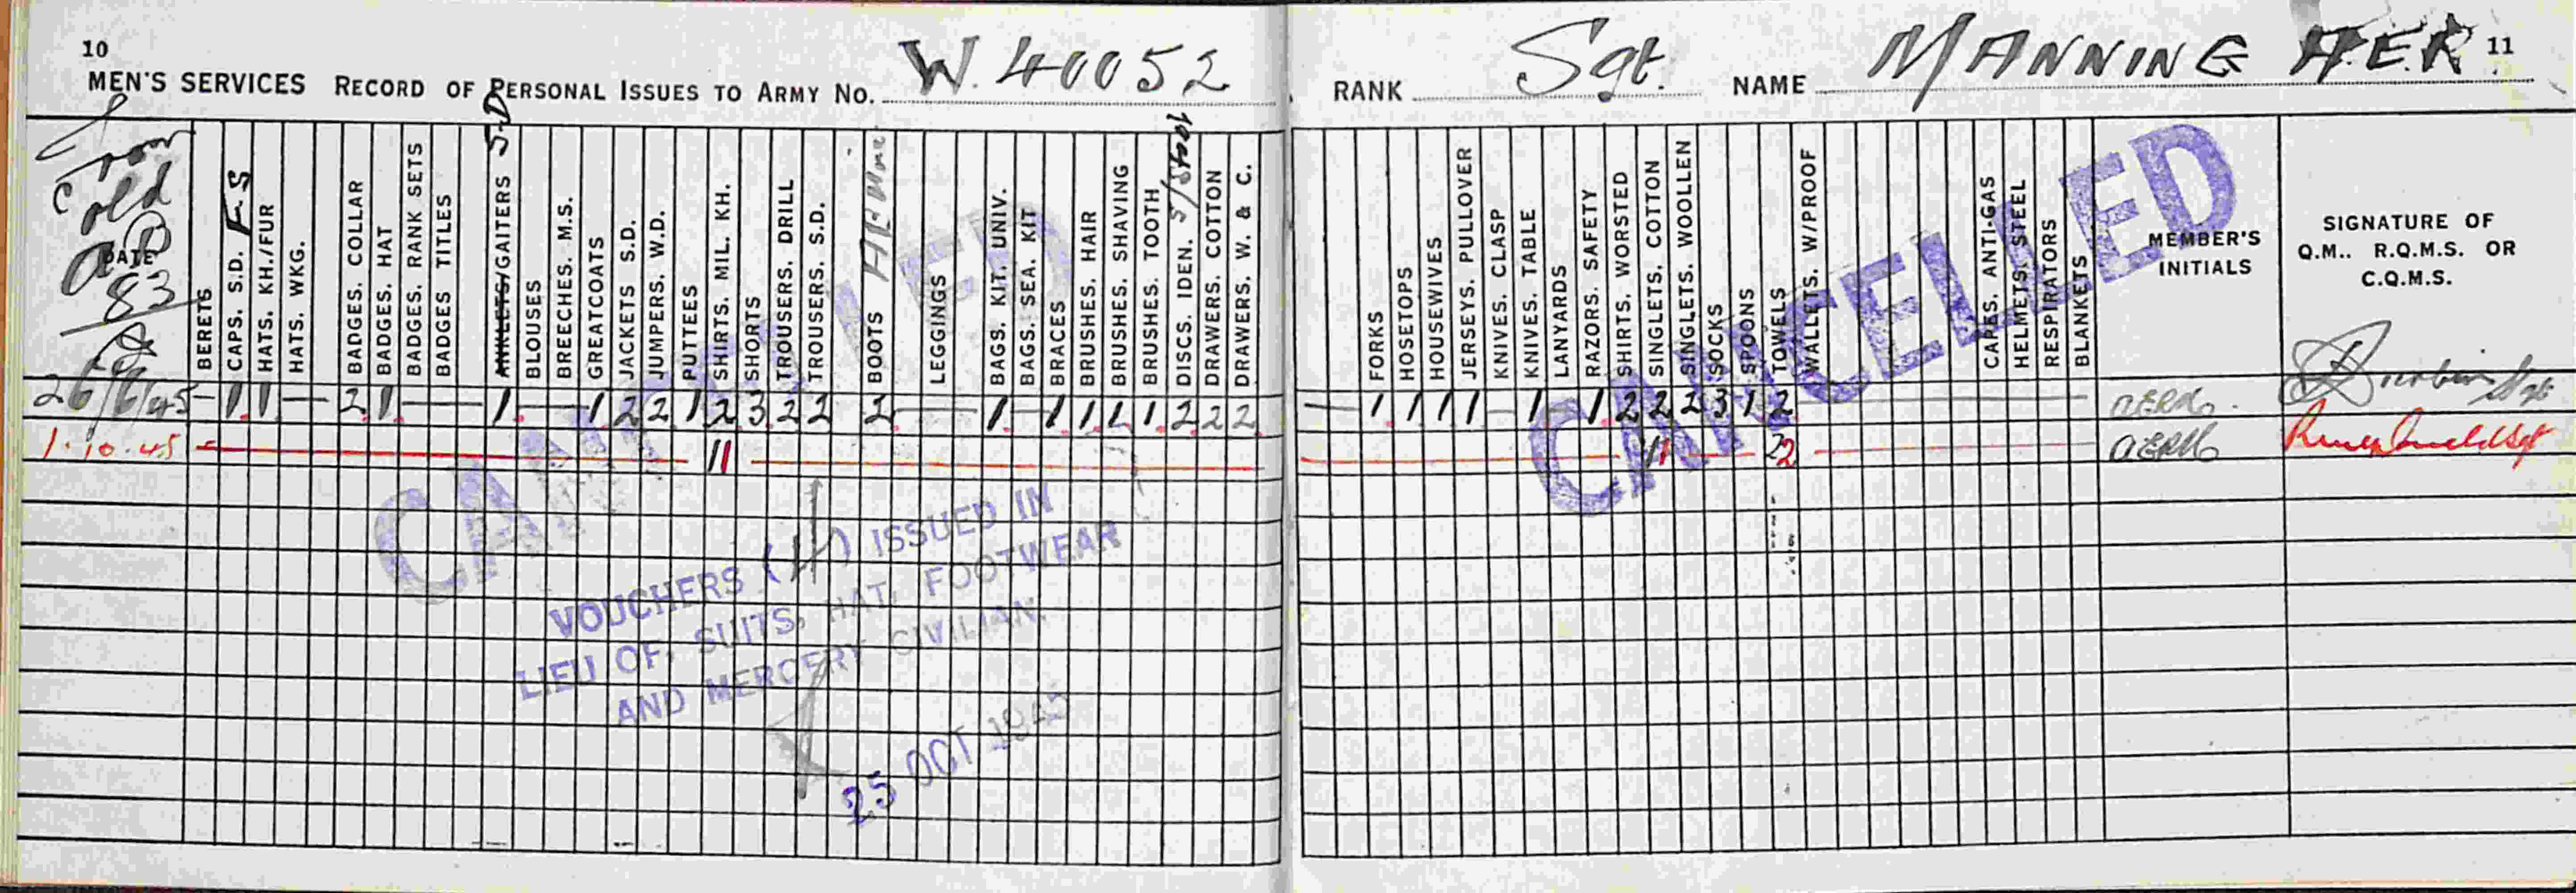 10
MEN'S SERVICES RECORD OF PERSONAL ISSUES TO ARMY NO. W.40052
RANK Sgt. NAME MANNING A.E.R. 11
From
old
83
DATE
BERETS
CAPS. S.D. F.S
HATS. KH./FUR
HATS. WKG.
BADGES. COLLAR
BADGES. HAT
BADGES. RANK SETS
BADGES TITLES
ANKLETS/GAITERS S.D
BLOUSES
BREECHES. M.S.
GREATCOATS
JACKETS S.D.
JUMPERS. W.D.
PUTTEES
SHIRTS. MIL. KH.
SHORTS
TROUSERS. DRILL
TROUSERS. S.D.
BOOTS
LEGGINGS
BAGS. KIT. UNIV.
BAGS. SEA. KIT
BRACES
BRUSHES. HAIR
BRUSHES. SHAVING
BRUSHES. TOOTH
DISCS. IDEN.
DRAWERS. COTTON
DRAWERS. W. & C.
FORKS
HOSETOPS
HOUSEWIVES
JERSEYS. PULLOVER
KNIVES. CLASP
KNIVES. TABLE
LANYARDS
RAZORS. SAFETY
SHIRTS. WORSTED
SINGLETS. COTTON
SINGLETS. WOOLLEN
SOCKS
SPOONS
TOWELS
WALLETS. W/PROOF
CAPES. ANTI-GAS
HELMETS. STEEL
RESPIRATORS
BLANKETS
MEMBER'S
INITIALS
SIGNATURE OF
Q.M.. R.Q.M.S. OR
C.Q.M.S.
26/6/45 — 1 1 — 2 1 — 1 — 1 2 2 1 2 3 2 2 2 — 1 — 1 1 1 1 2 2 2 — 1 1 1 1 — 1 — 1 2 2 2 3 1 2 — AERM. Sgt
1.10.45 — 11 — 11 — 22 — AERM Sgt
CANCELLED
CANCELLED
VOUCHERS (4) ISSUED IN
LIEU OF, SUITS, HAT, FOOTWEAR
AND MERCERY CIVILIAN.
25 OCT 1945